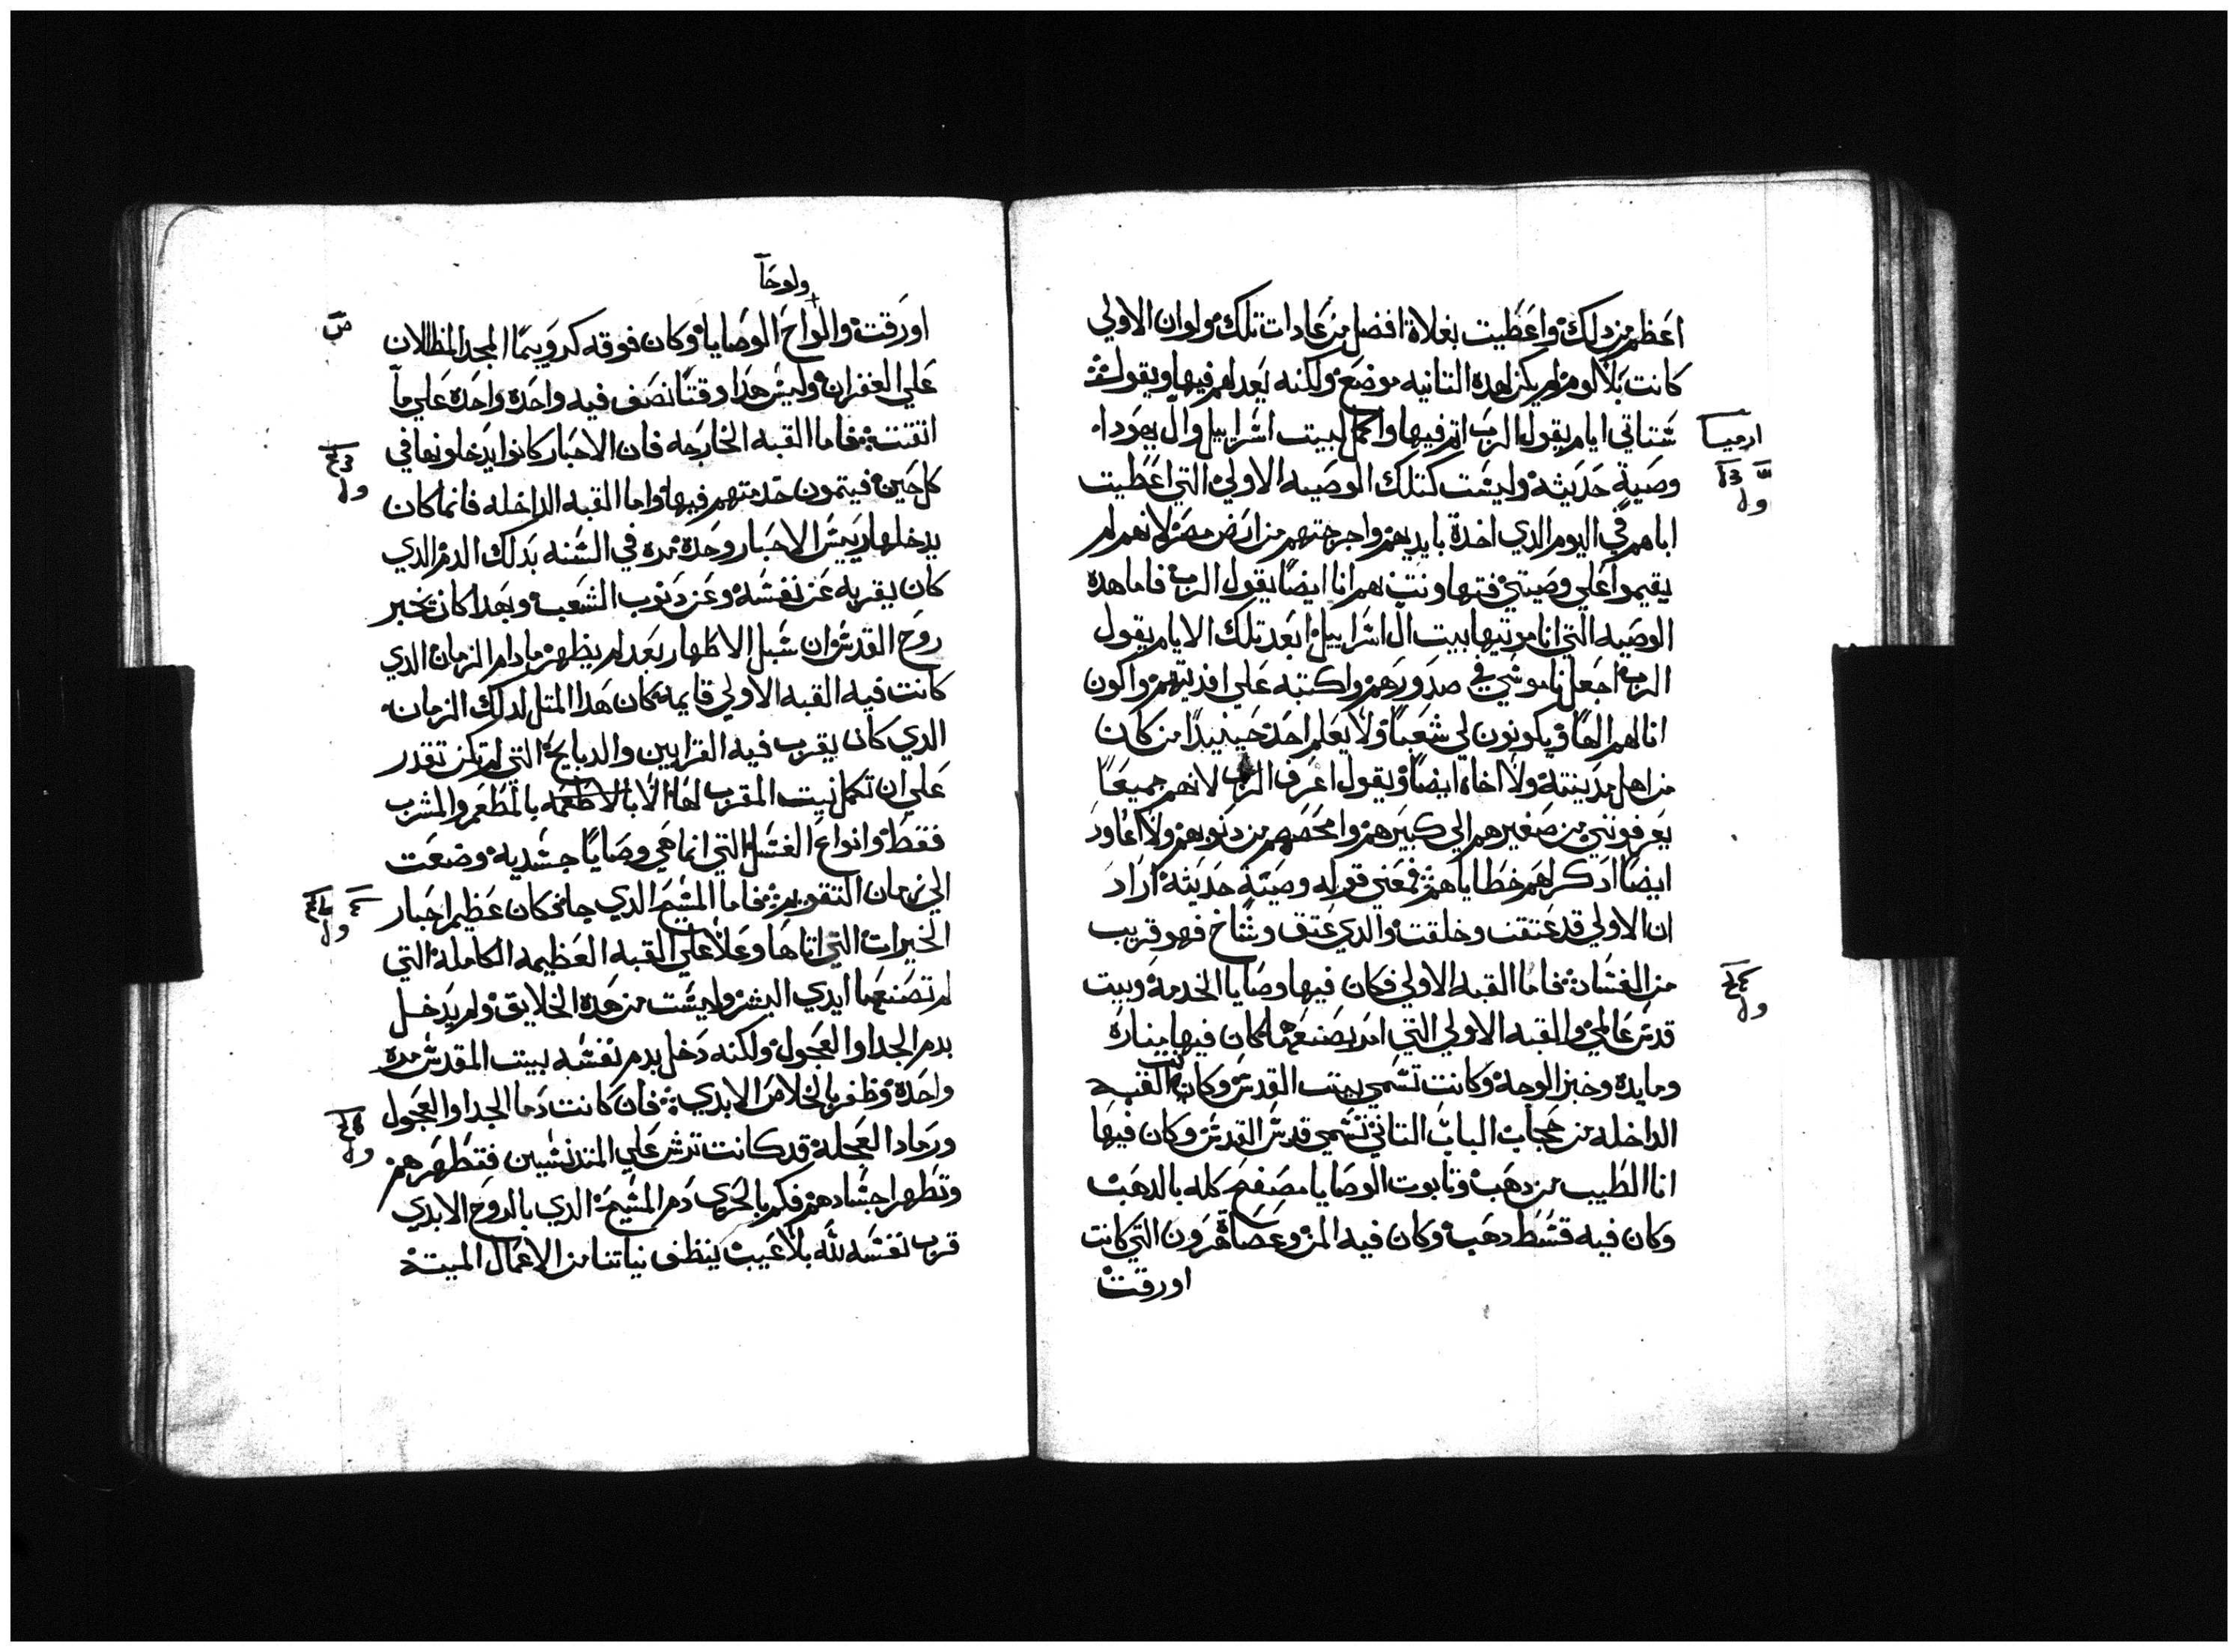 اعظم من دلك واعطيت بغلاة افضل من عادات تلك ولوان الاولي
كانت بلا لوم لم يكن لهده التانيه موضع ولكنه يعدلهم فيها ويقول
ستاتي ايام يقول الرب اتم فيها واكمل لبيت اسراييل وال يهودا
ارميا
وصية حديثه وليست كتلك الوصيه الاولي التي اعطيت
اباهم في اليوم الدي اخدة بايديهم واخرجتهم من ارض مصر لانهم لم
يقيموا علي وصيتي فتهاونت بهم انا ايضا يقول الرب فاما هده
الوصيه التي انا موتيها بيت ال اسراييل بعد تلك الايام يقول
الرب اجعل ناموسي في صدورهم واكتبه علي افديتهم واكون
انا لهم الها ويكونون لي شعبا ولا يعلم احد حينيدا من كان
من اهل مدينته ولا اخاه ايضا ويقول اعرف الرب لانهم جميعا
يعرفونني من صغيرهم الي كبيرهم وامحصهم من دنوبهم ولا اعاود
ايضا ادكر لهم خطاياهم فمعني قوله وصية حديثه اراد
ان الاولي قد عتقت وخلقت والدي عتق وشاخ فهو قريب
من الفساد فاما القبه الاولي فكان فيها وصايا الخدمه وبيت
قدس عالمي والقبه الاولي التي امر بصنعها كان فيها مناره
ومايده وخبز الوجه وكانت تسمي بيت القدس وكانت القبه
الداخله من حجاب الباب التاني تسمي قدس القدس وكان فيها
انا الطيب من دهب وتابوت الوصايا مصفح كله بالدهب
وكان فيه قسط دهب وكان فيه المن وعصاة هرون التي كانت
اورقت
ولوحا
اورقت والواح الوصايا وكان فوقه كروبيما المجد المظلان
علي الغفران وليس هدا وقتا نصف فيه واحده واحده علي ما
اتقنت فاما القبه الخارجه فان الاحبار كانوا يدخلونها في
كل حين فيتمون خدمتهم فيها واما القبه الداخله فانما كان
يدخلها رييس الاحبار وحده مره في السنه بدلك الدم الدي
كان يقربه عن نفسه وعن دنوب الشعب وبهدا كان يخبر
روح القدس ان سبل الاطهار بعد لم يظهر مادام الزمان الدي
كانت فيه القبه الاولي قايمه كان هدا المتل لدلك الزمان
الدي كان يقرب فيه القرابين والدبايح التي لم تكن تقدر
علي ان تكمل نيت المقرب لها الا بالاطعمه بالمطعم والمشرب
فقط وانواع الغسل التي انما هي وصايا جسديه وضعت
الي زمان التقويم فاما المسيح الدي جا فكان عظيم احبار
الخيرات التي اتاها وعلا علي القبه العظيمه الكامله التي
لم تصنعها ايدي البشر وليست من هده الخلايق ولم يدخل
بدم الجدا والعجول ولكنه دخل بدم نفسه بيت المقدس مره
واحده وظفر بالخلاص الابدي فان كانت دما الجدا والعجول
ورماد العجله قد كانت ترش علي المتدنسين فتطهرهم
وتطهر اجسادهم فكم بالحري دم المسيح الدي بالروح الابدي
قرب نفسه لله بلا عيب ينظف نياتنا من الاعمال الميته